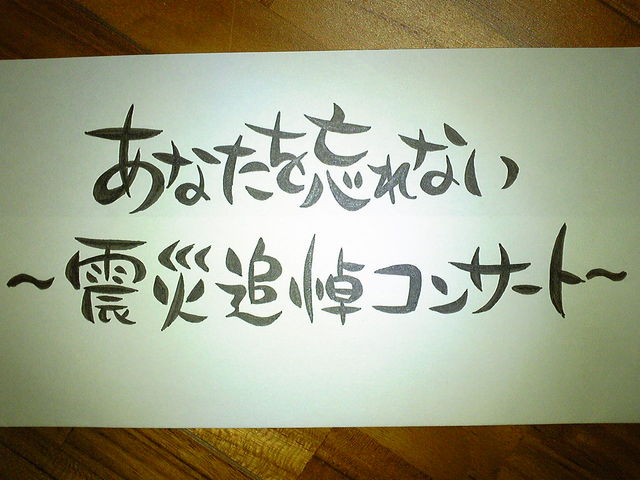 あなたを忘れない
～震災追悼コンサート～